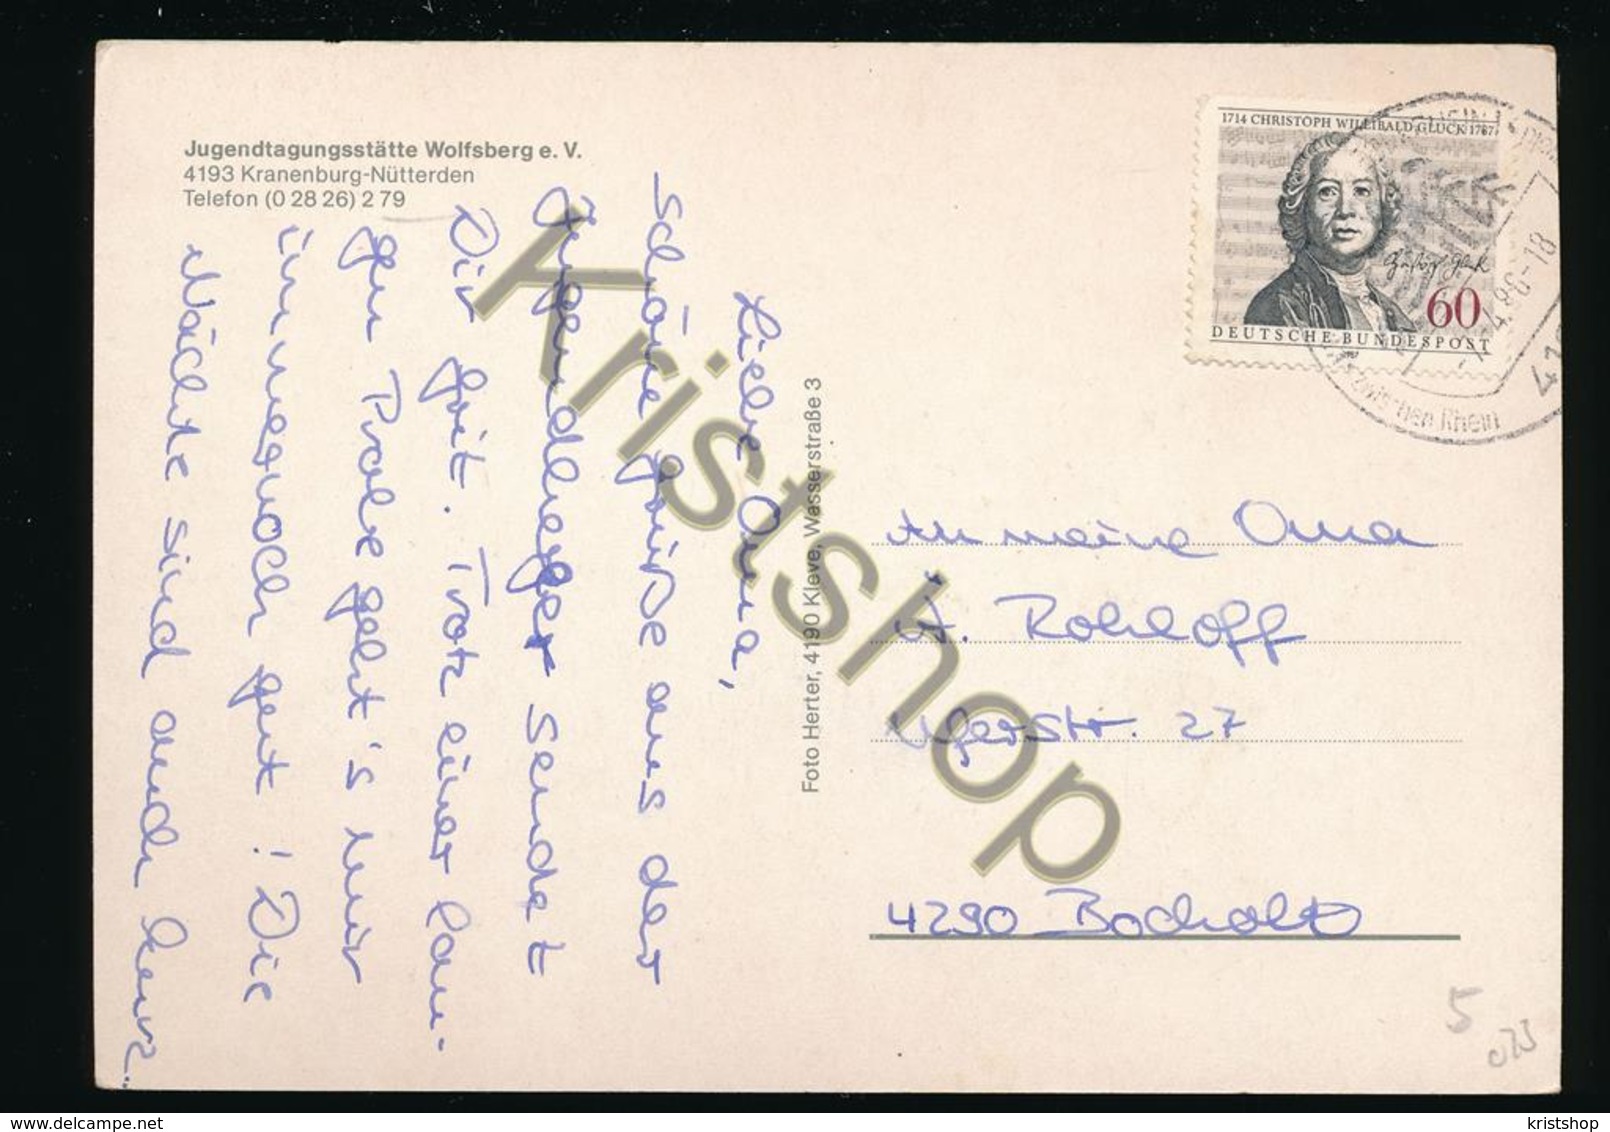 Jugendtagungsstätte Wolfsberg e. V.
4193 Kranenburg-Nütterden
Telefon (0 28 26) 2 79
Liebe Oma,
schöne Grüße aus der
Jugendherger sendet
Dir Grit. Trotz einer lan-
gen Probe geht's mir
immernoch gut! Die
Nächte sind auch kurz..
Foto Herter, 4190 Kleve, Wasserstraße 3
1714 CHRISTOPH WILLIBALD GLUCK 1787
Christoph Gluck
60
DEUTSCHE BUNDESPOST
.4.88-18
Rhein
An meine Oma
A. Rohloff
Ufer Str. 27
4290 Bocholt
5
Kristshop
www.delcampe.net
kristshop